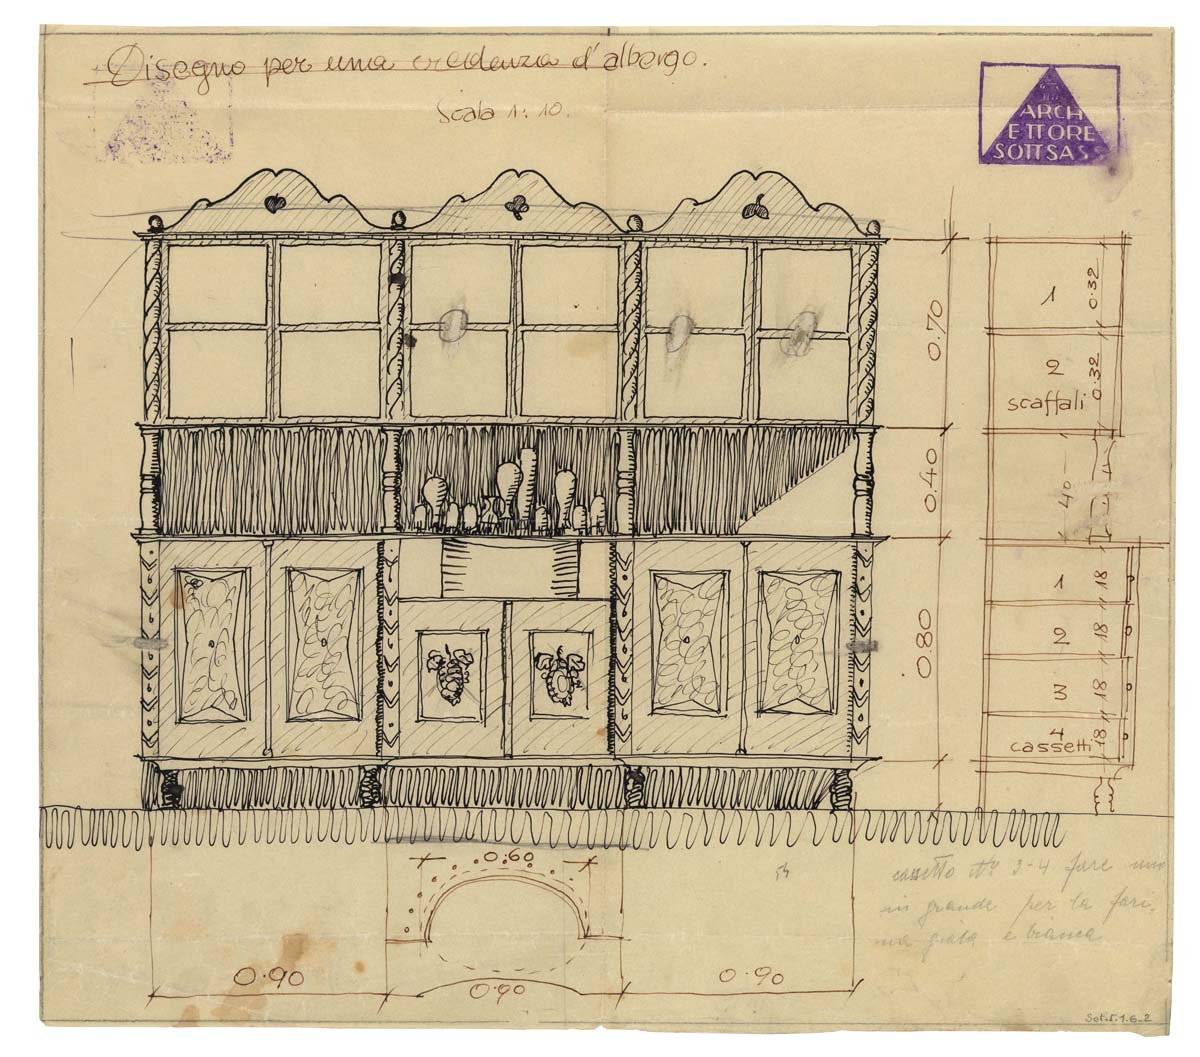 Disegno per una credenza d'albergo.
Scala 1:10.
ARCH
ETTORE
SOTTSAS
0.70
0.40
0.80
1
0.32
2
0.32
scaffali
40
1
18
2
18
3
18
4
18
cassetti
0.60
0.90
0.90
0.90
cassetto Nº 3-4 fare uno
in grande per la fari.
na gialla e bianca
Sot.S.1.6_2